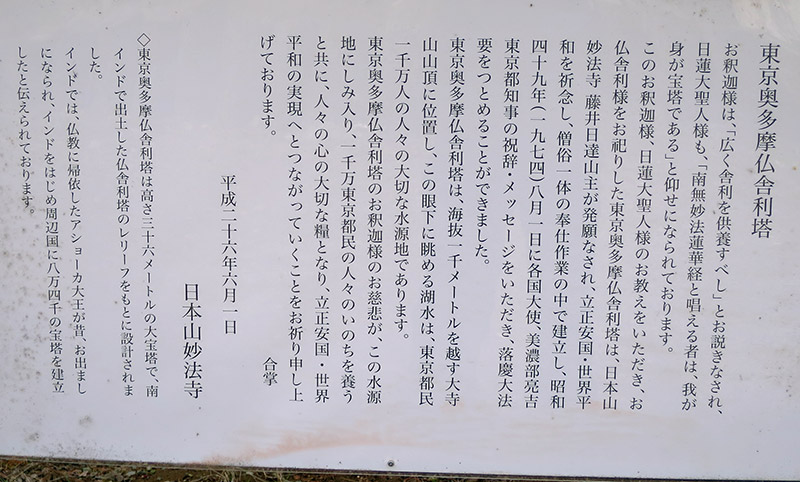 東京奥多摩仏舎利塔
お釈迦様は、「広く舎利を供養すべし」とお説きなされ、
日蓮大聖人様も、「南無妙法蓮華経と唱える者は、我が
身が宝塔である」と仰せになられております。
このお釈迦様、日蓮大聖人様のお教えをいただき、お
仏舎利様をお祀りした東京奥多摩仏舎利塔は、日本山
妙法寺　藤井日達山主が発願なされ、立正安国・世界平
和を祈念し、僧俗一体の奉仕作業の中で建立し、昭和
四十九年(一九七四)八月一日に各国大使、美濃部亮吉
東京都知事の祝辞・メッセージをいただき、落慶大法
要をつとめることができました。
東京奥多摩仏舎利塔は、海抜一千メートルを越す大寺
山山頂に位置し、この眼下に眺める湖水は、東京都民
一千万人の人々の大切な水源地であります。
東京奥多摩仏舎利塔のお釈迦様のお慈悲が、この水源
地にしみ入り、一千万東京都民の人々のいのちを養う
と共に、人々の心の大切な糧となり、立正安国・世界
平和の実現へとつながっていくことをお祈り申し上
げております。
合掌
平成二十六年六月一日
日本山妙法寺
◇東京奥多摩仏舎利塔は高さ三十六メートルの大宝塔で、南
インドで出土した仏舎利塔のレリーフをもとに設計されま
した。
インドでは、仏教に帰依したアショーカ大王が昔、お出まし
になられ、インドをはじめ周辺国に八万四千の宝塔を建立
したと伝えられております。